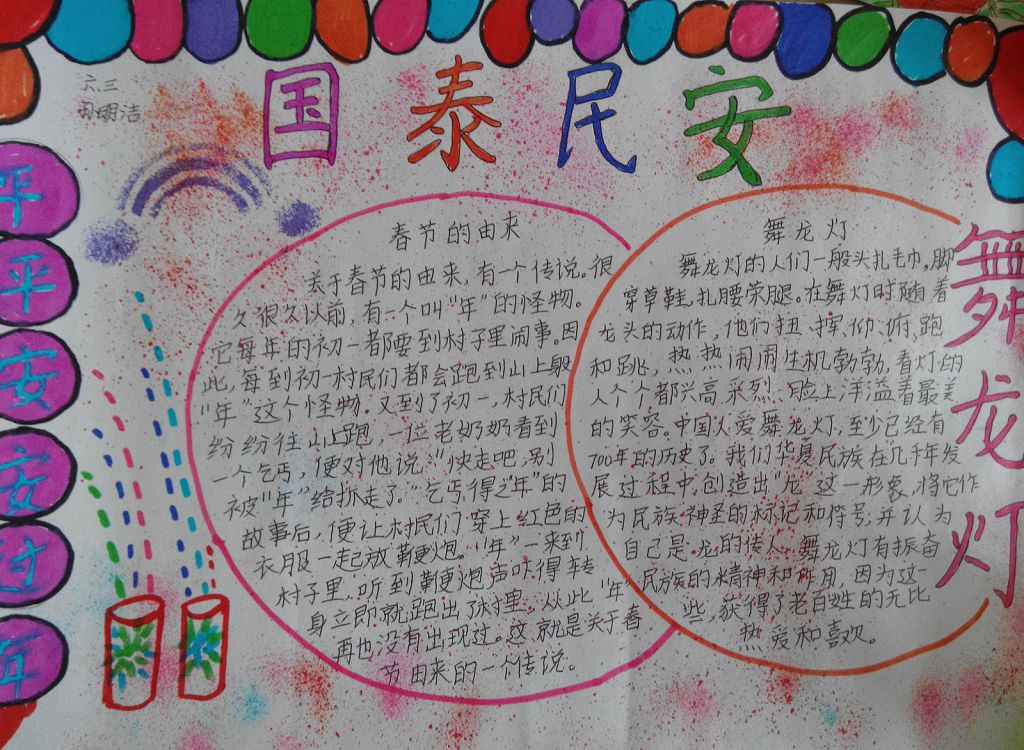 六.三
明洁
国泰民安
平
平
安
安
过
年
春节的由来
关于春节的由来,有一个传说。很
久很久以前,有一个叫"年"的怪物。
它每年的初一都要到村子里闹事。因
此,每到初一村民们都会跑到山上躲
"年"这个怪物。又到了初一,村民们
纷纷往山上跑,一位老奶奶看到
一个乞丐,便对他说:"快走吧,别
被"年"给抓走了。"乞丐得之"年"的
故事后,便让村民们穿上红色的
衣服一起放鞭炮。"年"一来到
村子里,听到鞭炮声吓得转
身立即就跑出了村里。从此"年"
再也没有出现过。这就是关于春
节由来的一个传说。
舞龙灯
舞龙灯的人们一般头扎毛巾,脚
穿草鞋,扎腰束腿。在舞灯时随着
龙头的动作,他们扭、挥、仰、俯、跑
和跳,热热闹闹生机勃勃,看灯的
人个个都兴高采烈、脸上洋溢着最美
的笑容。中国人爱舞龙灯,至少已经有
700年的历史了。我们华夏民族在几千年发
展过程中,创造出"龙"这一形象,将它作
为民族神圣的标记和符号,并认为
自己是龙的传人。舞龙灯有振奋
民族的精神和作用,因为这一
些,获得了老百姓的无比
热爱和喜欢。
舞龙灯